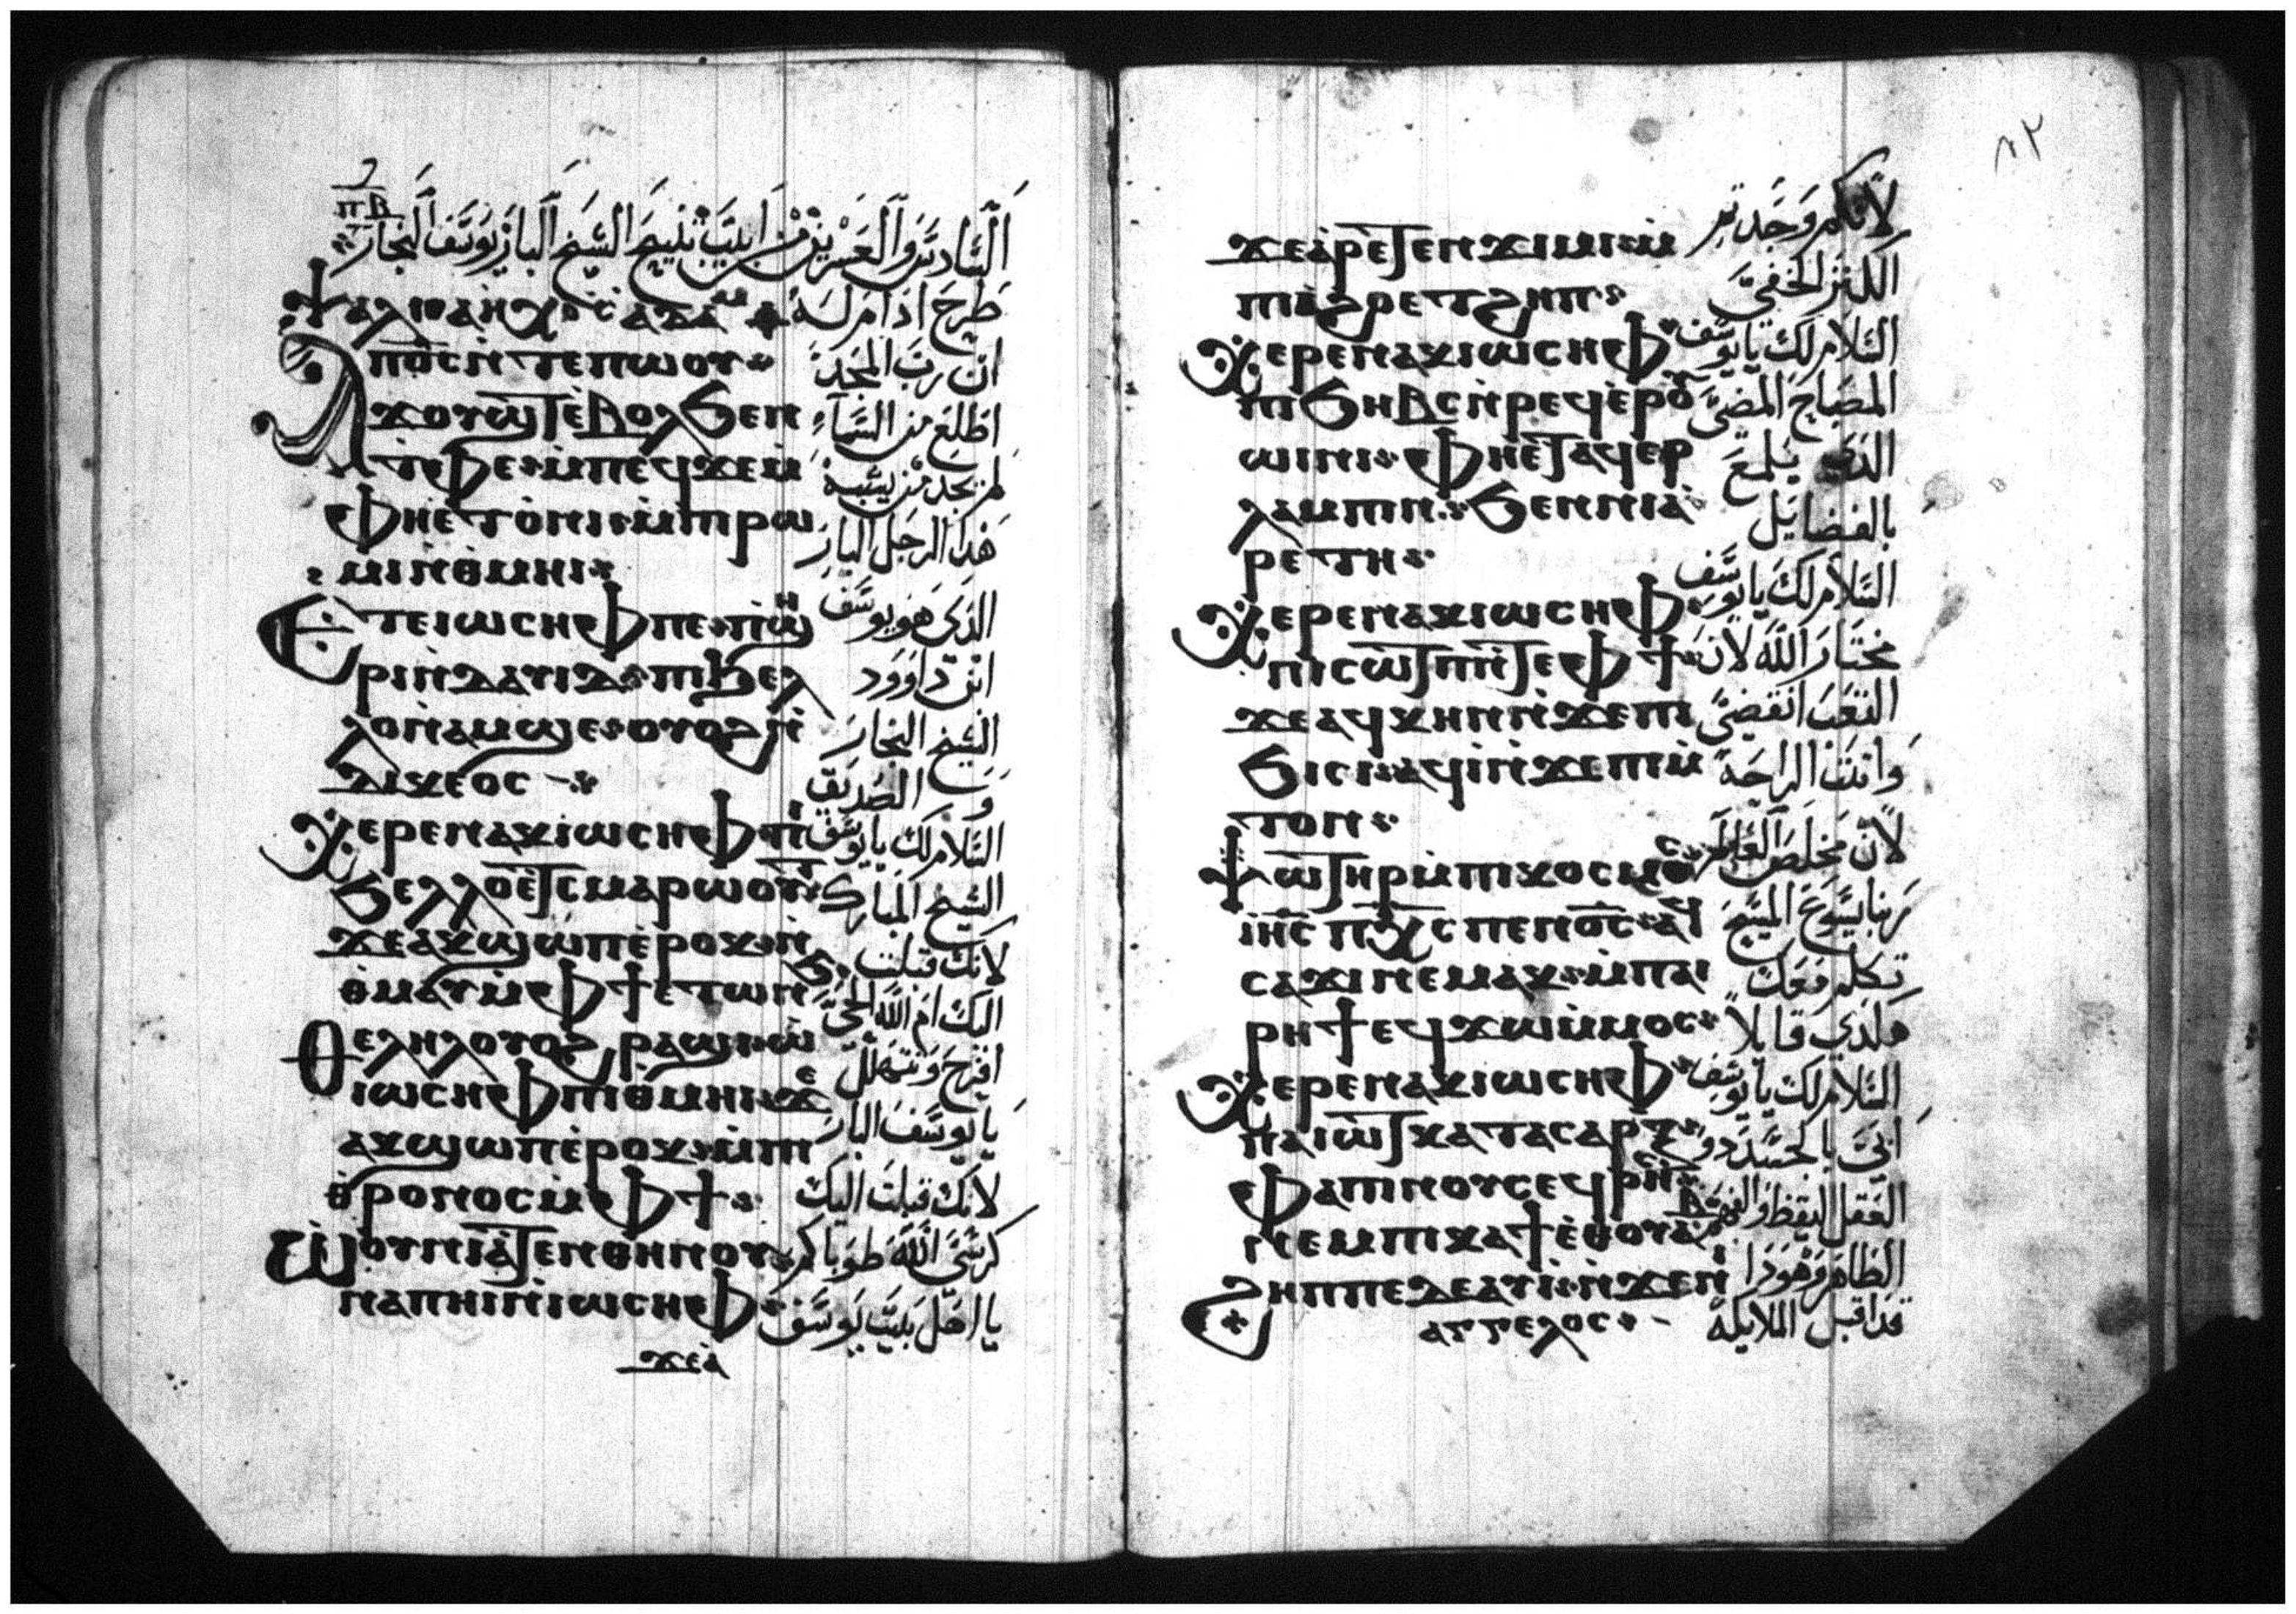 ⲡⲃ
السادس والعشرين من ابيب نياح الشيخ البار يوسف النجار
ⲯⲁⲗⲓ ⲁⲇⲁⲙ طرح ادام له
ⲁⲡⲟ̅ⲥ̅ ⲛ̀ⲧⲉⲡⲱⲟⲩ ان رب المجد
ϫⲟⲩϣⲧ ⲉ̀ⲃⲟⲗϧⲉⲛ اطلع من السماء
ⲧ̀ⲫⲉ ⲙ̀ⲡⲉϥϫⲉⲙ لم يجد من يشبه
ⲫⲏⲉ̀ⲧⲟ̀ⲛⲓ ⲙ̀ⲡⲓⲣⲱ هذا الرجل البار
ⲙⲓ ⲛ̀ⲑⲙⲏⲓ
ⲉⲧⲉ ⲓⲱⲥⲏⲫ ⲡⲉ ⲡ̀ϣⲏ الذي هو يوسف
ⲣⲓ ⲛ̀ⲇⲁⲩⲓⲇ ⲡⲓϧⲉⲗ ابن داوود
ⲗⲟ ⲛ̀ⲁⲙϣⲉ ⲟⲩⲟϩ ⲛ̀ الشيخ النجار
ⲇⲓⲕⲉⲟⲥ و الصديق
ⲭⲉⲣⲉ ⲛⲁⲕ ⲓⲱⲥⲏⲫ ⲡⲓ السلام لك يا يوسف
ϧⲉⲗⲗⲟ ⲉⲧⲥⲙⲁⲣⲱⲟⲩⲧ الشيخ المبارك
ϫⲉ ⲁⲕϣⲱⲡ ⲉ̀ⲣⲟⲕ ⲛ̀ لانك قبلت
ⲑ̀ⲙⲁⲩ ⲙ̀ⲫϯ ⲉⲧⲱⲛϧ اليك ام الله الحي
ⲑⲉⲗⲏⲗ ⲟⲩⲟϩ ⲣⲁϣⲓ ⲱ̀ افرح وتهلل
ⲓⲱⲥⲏⲫ ⲡⲓⲑⲙⲏⲓ ϫⲉ يا يوسف البار
ⲁⲕϣⲱⲡ ⲉ̀ⲣⲟⲕ ⲙ̀ⲡⲓ
ⲑ̀ⲣⲟⲛⲟⲥ ⲙ̀ⲫϯ لانك قبلت اليك
ⲱⲟⲩⲛⲓⲁ̀ⲧⲉⲛⲑⲏⲛⲟⲩ كرسي الله طوباكم
ⲛⲁⲡⲏⲓ ⲛ̀ⲓⲱⲥⲏⲫ يا اهل بيت يوسف
ϫⲉⲁ̀
٨٢
ϫⲉ ⲁ̀ⲣⲉⲧⲉⲛϫⲓⲙⲓ ⲙ̀ لانكم وجدتم
ⲡⲓⲁ̀ϩⲟ ⲉⲧϩⲏⲡ الكنز الخفي
ⲭⲉⲣⲉ ⲛⲁⲕ ⲓⲱⲥⲏⲫ السلام لك يا يوسف
ⲡⲓϧⲏⲃⲥ ⲛ̀ⲣⲉϥⲉⲣⲟⲩ المصباح المضي
ⲱⲓⲛⲓ ⲫⲏⲉ̀ⲧⲁϥⲉⲣ الذي يلمع
ⲗⲁⲙⲡⲓⲛ ϧⲉⲛ ⲛⲓⲁ̀ بالفضايل
ⲣⲉⲧⲏ
ⲭⲉⲣⲉ ⲛⲁⲕ ⲓⲱⲥⲏⲫ السلام لك يا يوسف
ⲡⲓⲥⲱⲧⲡ ⲛ̀ⲧⲉ ⲫϯ مختار الله لان
ϫⲉ ⲁϥⲭⲏⲛ ⲛ̀ϫⲉ ⲡⲓ التعب انقضي
ϧⲓⲥⲓ ⲁϥⲓ̀ ⲛ̀ϫⲉ ⲡⲓⲙ̀ واتت الراحة
ⲧⲟⲛ
ⲯⲱⲧⲏⲣ ⲙ̀ⲡⲓⲕⲟⲥⲙⲟⲥ لان مخلص العالم
ⲓⲏ̅ⲥ̅ ⲡⲭ̅ⲥ̅ ⲡⲉⲛⲟ̅ⲥ̅ ⲁϥ ربنا يسوع المسيح
ⲥⲁϫⲓ ⲛⲉⲙⲁⲕ ⲙ̀ⲡⲁⲓ تكلم معك
ⲣⲏϯ ⲉϥϫⲱ ⲙ̀ⲙⲟⲥ هكذي قايلا
ⲭⲉⲣⲉ ⲛⲁⲕ ⲓⲱⲥⲏⲫ السلام لك يا يوسف
ⲡⲁⲓⲱⲧ ⲕⲁⲧⲁ ⲥⲁⲣⲝ ابي بالجسد ذو
ⲫⲁⲡⲓⲛⲟⲩⲥ ⲉϥⲣⲏⲥ العقل اليقظ والفهم
ⲛⲉⲙ ⲡⲓⲕⲁϯ ⲉ̀ⲑⲟⲩⲁⲃ الطاهر وهوذا
ϩⲏⲡⲡⲉ ⲇⲉ ⲁⲩⲓ̀ ⲛ̀ϫⲉ ⲛⲓ
ⲁⲅⲅⲉⲗⲟⲥ قد اقبل الملايكة